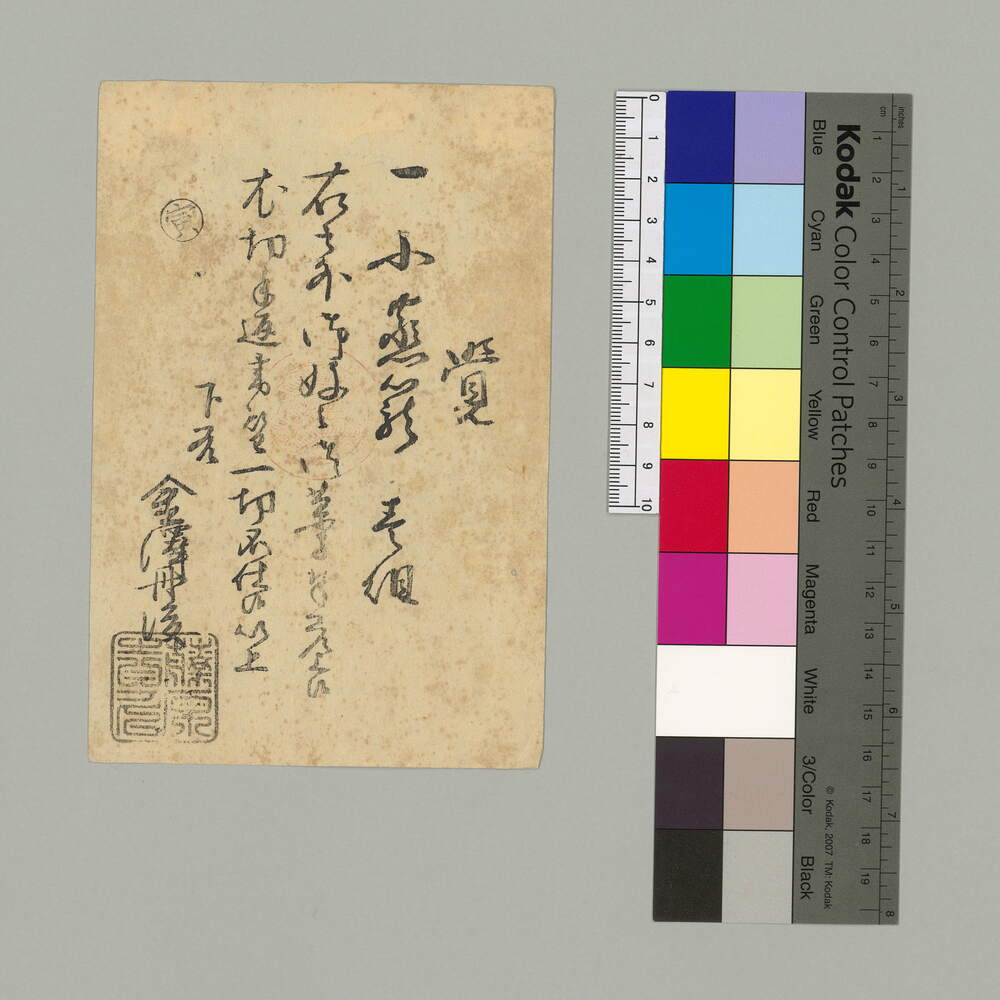 覺
一 小蒸籠 壱組
右之外御好之御菓子差上候
尤切手返来無一切不仕候以上
下谷
金澤丹後
寅
Kodak Color Control Patches
Blue
Cyan
Green
Yellow
Red
Magenta
White
3/Color
Black
© Kodak, 2007 TM: Kodak
inches
1
2
3
4
5
6
7
8
cm
1
2
3
4
5
6
7
8
9
10
11
12
13
14
15
16
17
18
19
0
1
2
3
4
5
6
7
8
9
10